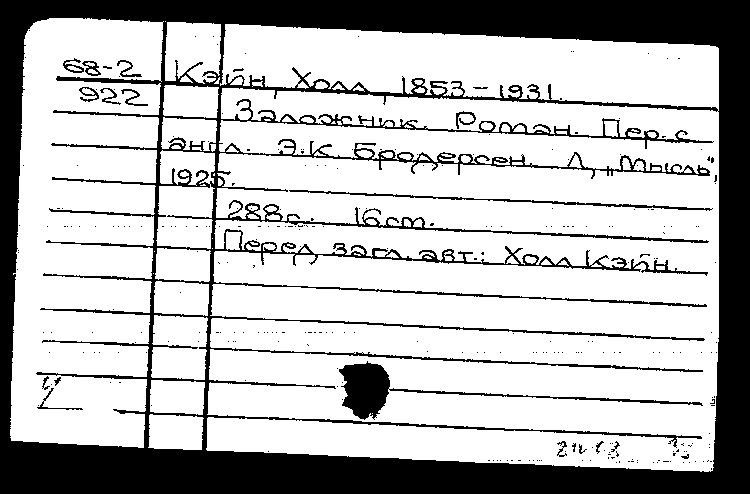 68-2 Кэйн, Холл, 1853-1931.
922 Заложник. Роман. Пер. с
англ. Э.К. Бродерсен. Л, „Мысль",
1925.
288 с. 16 cm.
Перед загл. авт.: Холл Кэйн.